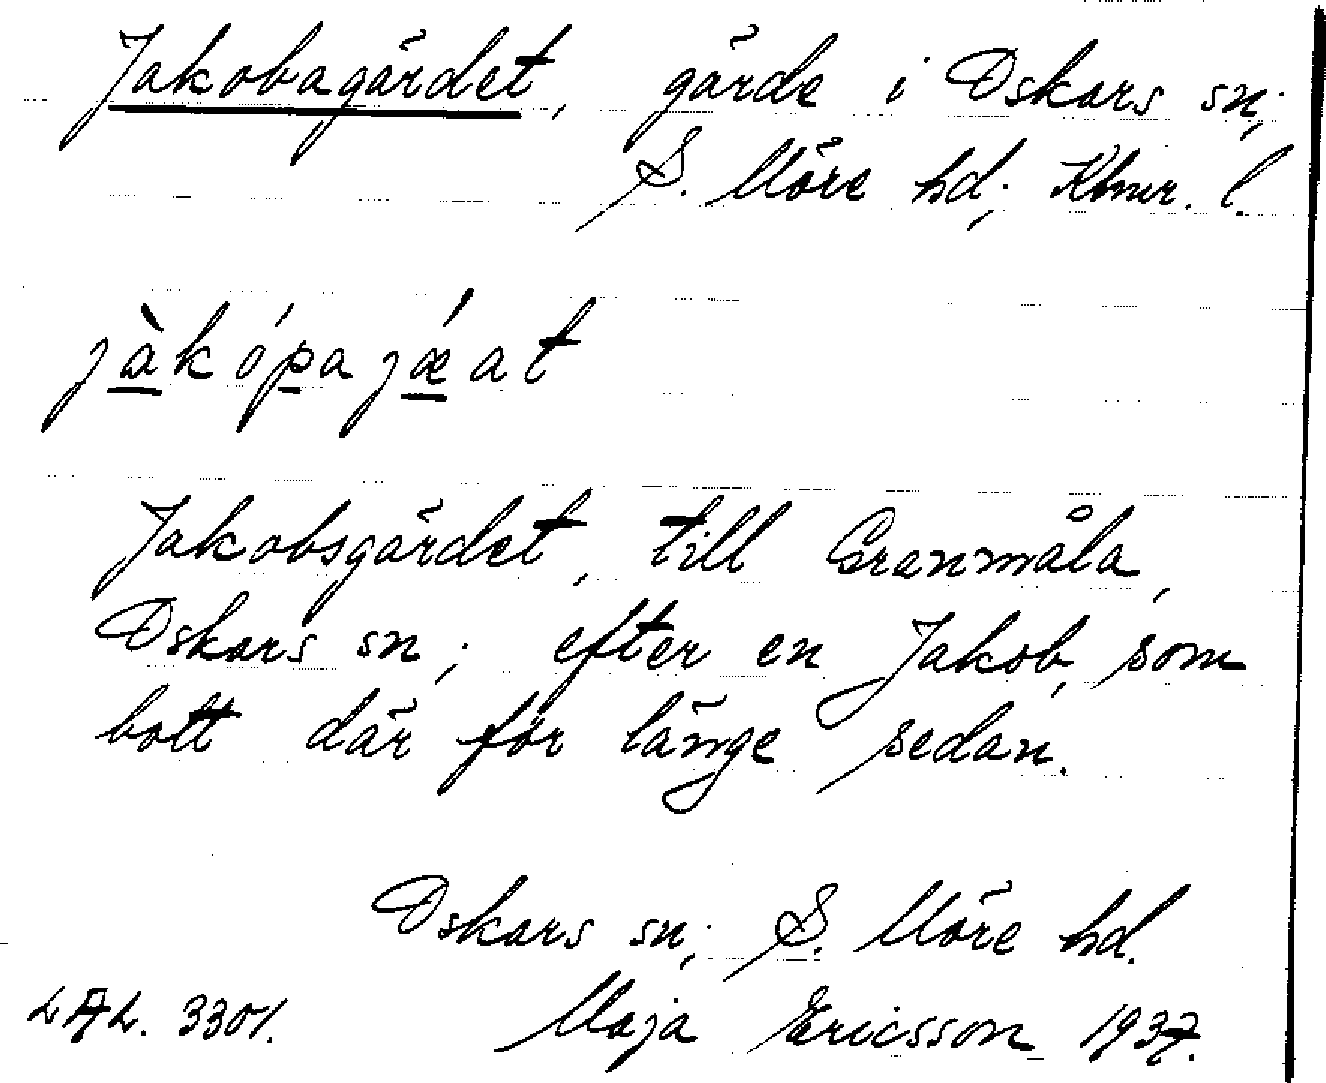 Jakobagärdet, gärde i Oskars sn;
S. Möre hd; Kbmr. l.
jàkópajǽat
Jakobsgärdet, till Granmåla,
Oskars sn; efter en Jakob, som
bott där för länge sedan.
Oskars sn; S. Möre hd.
LAL. 3301. Maja Ericsson 1937.